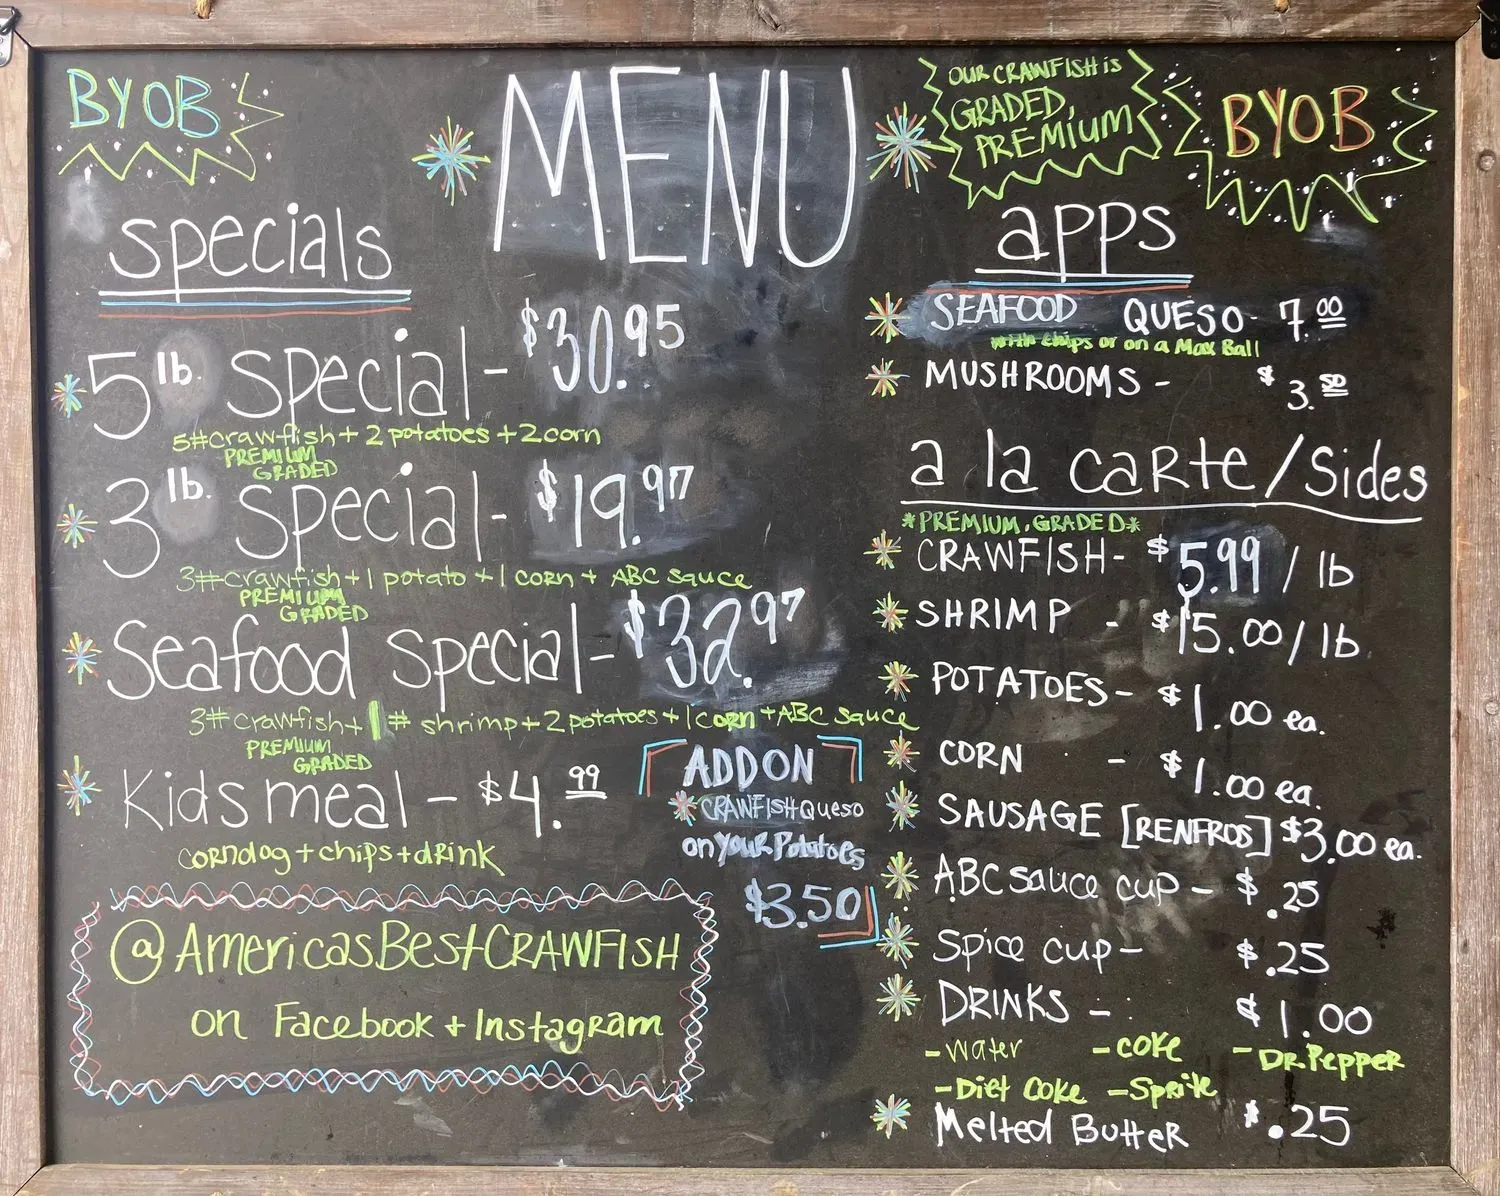 BYOB
MENU
OUR CRAWFISH is
GRADED,
PREMIUM
BYOB
specials
5 lb. special - $30.95
5# crawfish + 2 potatoes + 2 corn
PREMIUM
GRADED
3 lb. special - $19.97
3# crawfish + 1 potato + 1 corn + ABC sauce
PREMIUM
GRADED
Seafood special - $32.97
3# crawfish + 1# shrimp + 2 potatoes + 1 corn + ABC sauce
PREMIUM
GRADED
Kids meal - $4.99
corndog + chips + drink
ADD ON
CRAWFISH Queso
on your Potatoes
$3.50
@AmericasBestCRAWFISH
on Facebook + Instagram
apps
SEAFOOD QUESO - 7.00
with chips or on a Max Ball
MUSHROOMS - $3.50
a la carte/Sides
*PREMIUM, GRADED*
CRAWFISH - $5.99 / lb
SHRIMP - $15.00 / lb
POTATOES - $1.00 ea.
CORN - $1.00 ea.
SAUSAGE [RENFROS] $3.00 ea.
ABC sauce cup - $.25
Spice cup - $.25
DRINKS - $1.00
- Water - Coke - DR. Pepper
- Diet Coke - Sprite
Melted Butter $.25